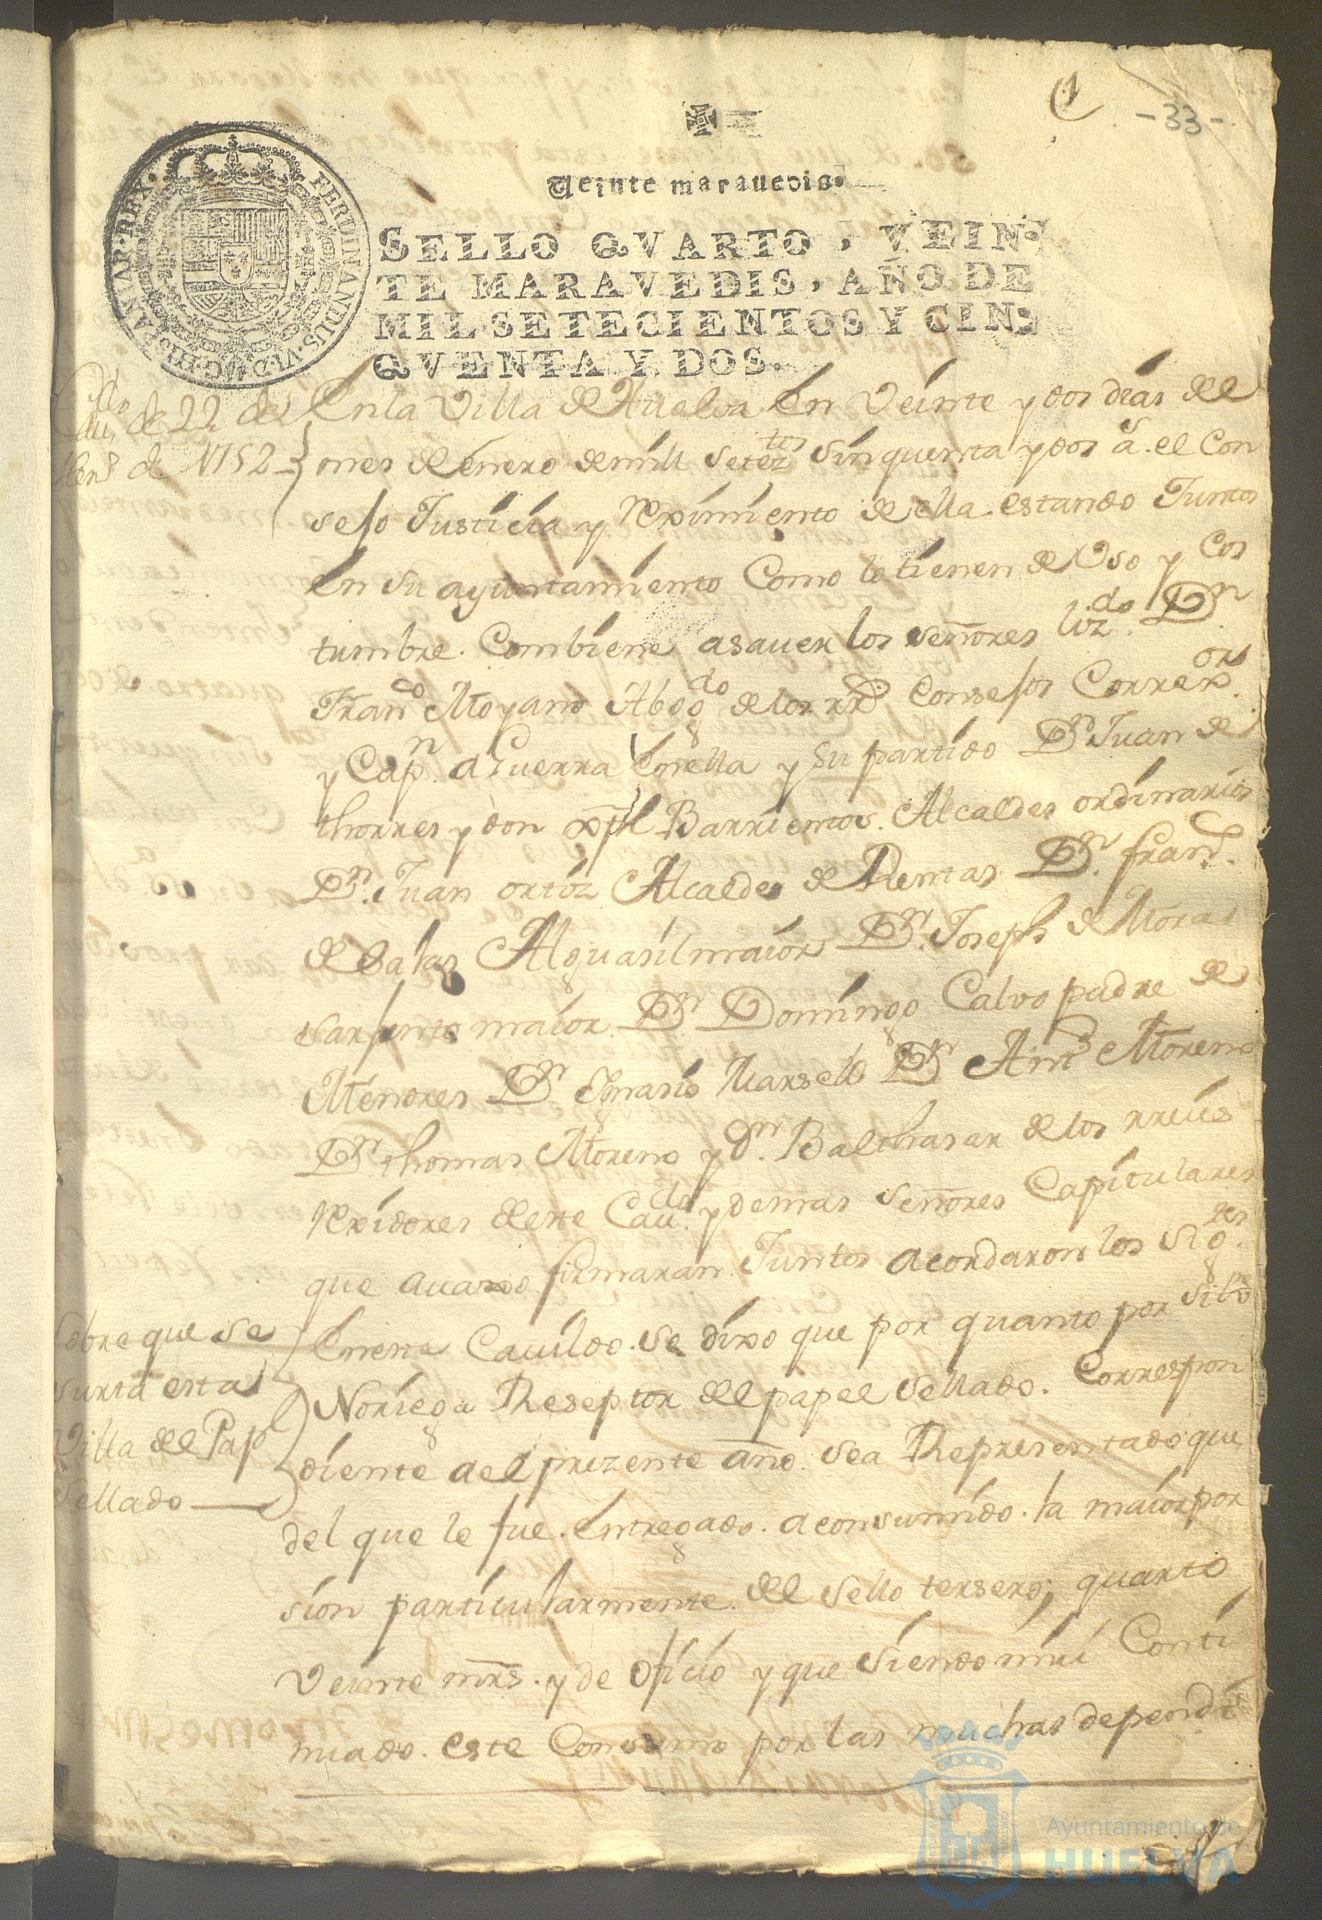 1
-33-
Veinte maravedis.
SELLO QVARTO, VEIN-
TE MARAVEDIS, AÑO DE
MIL SETECIENTOS Y CIN-
QVENTA Y DOS.
FERDINANDUS·VI·D·G·HISPANIAR·REX·
de 22 de
de 1752
En la Villa de Huelva en Veinte y dos dias del
mes de enero de mill setez.tos sinquenta y dos a.s el Con
sejo Justicia y Reximiento de ella estando Juntos
en su ayuntamiento Como lo tienen de Uso y Cos
tumbre. Combiene a saver los señores liz.do D.n
Fran.co Moyano Abog.do de los rr.s Consejos Correx.or
y Cap.n a Guerra en ella y su partido D.n Juan de
thorres y don xptl Barrientos. Alcaldes ordinarios
D.n Juan ortiz Alcalde de Rentas D.n fran.co
de Salas Alguasil maior D.n Joseph de Moras
sarjento maior D.n Domingo Calvo padre de
Menores D.n Ignasio Marselo D.n Ant.o Moreno
D.n thomas Moreno y d.n Balthasar de los rreies
Rexidores de este Cav.do y demas señores Capitulares
que avaxo firmaran Juntos acordaron los sig.tes
Sobre que se
surta esta
Villa de el Pap
Sellado
En este Cavildo se dixo que por quanto por
Noriega Reseptor del papel sellado. Correspon
diente a el prezente año. sea Representado que
del que le fue. entregado. a consumido. la maior por
sion particularmente. del sello tersero, quarto
Veinte mrs. y de oficio y que siendo mui Conti
nuado. este Consumo por las muchas dependi
Ayuntamiento de
HUELVA